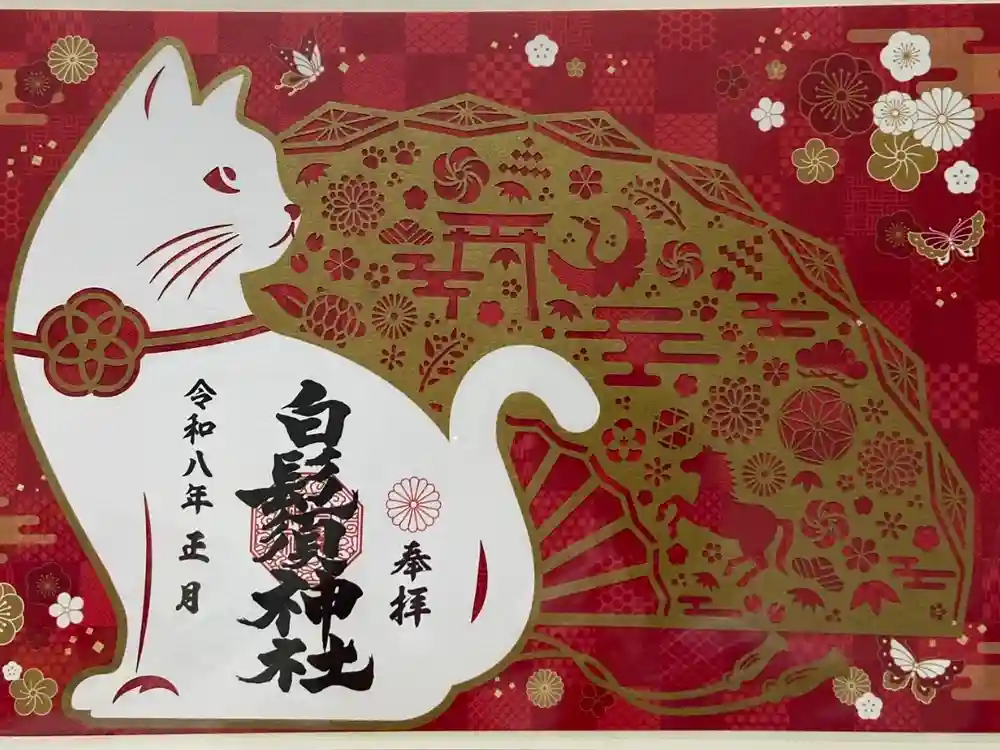 奉拝
白鬚須神社
令和八年 正月